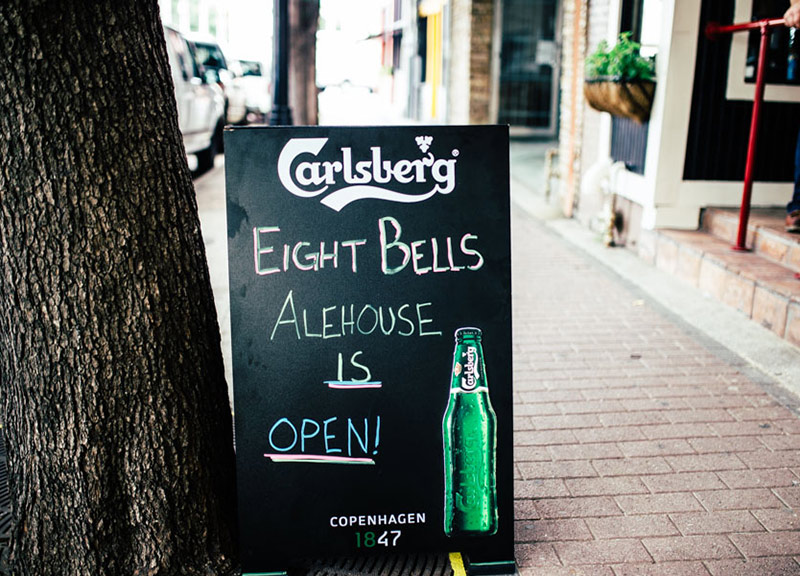 Carlsberg®
EIGHT BELLS
ALEHOUSE
IS
OPEN!
Carlsberg
COPENHAGEN
1847